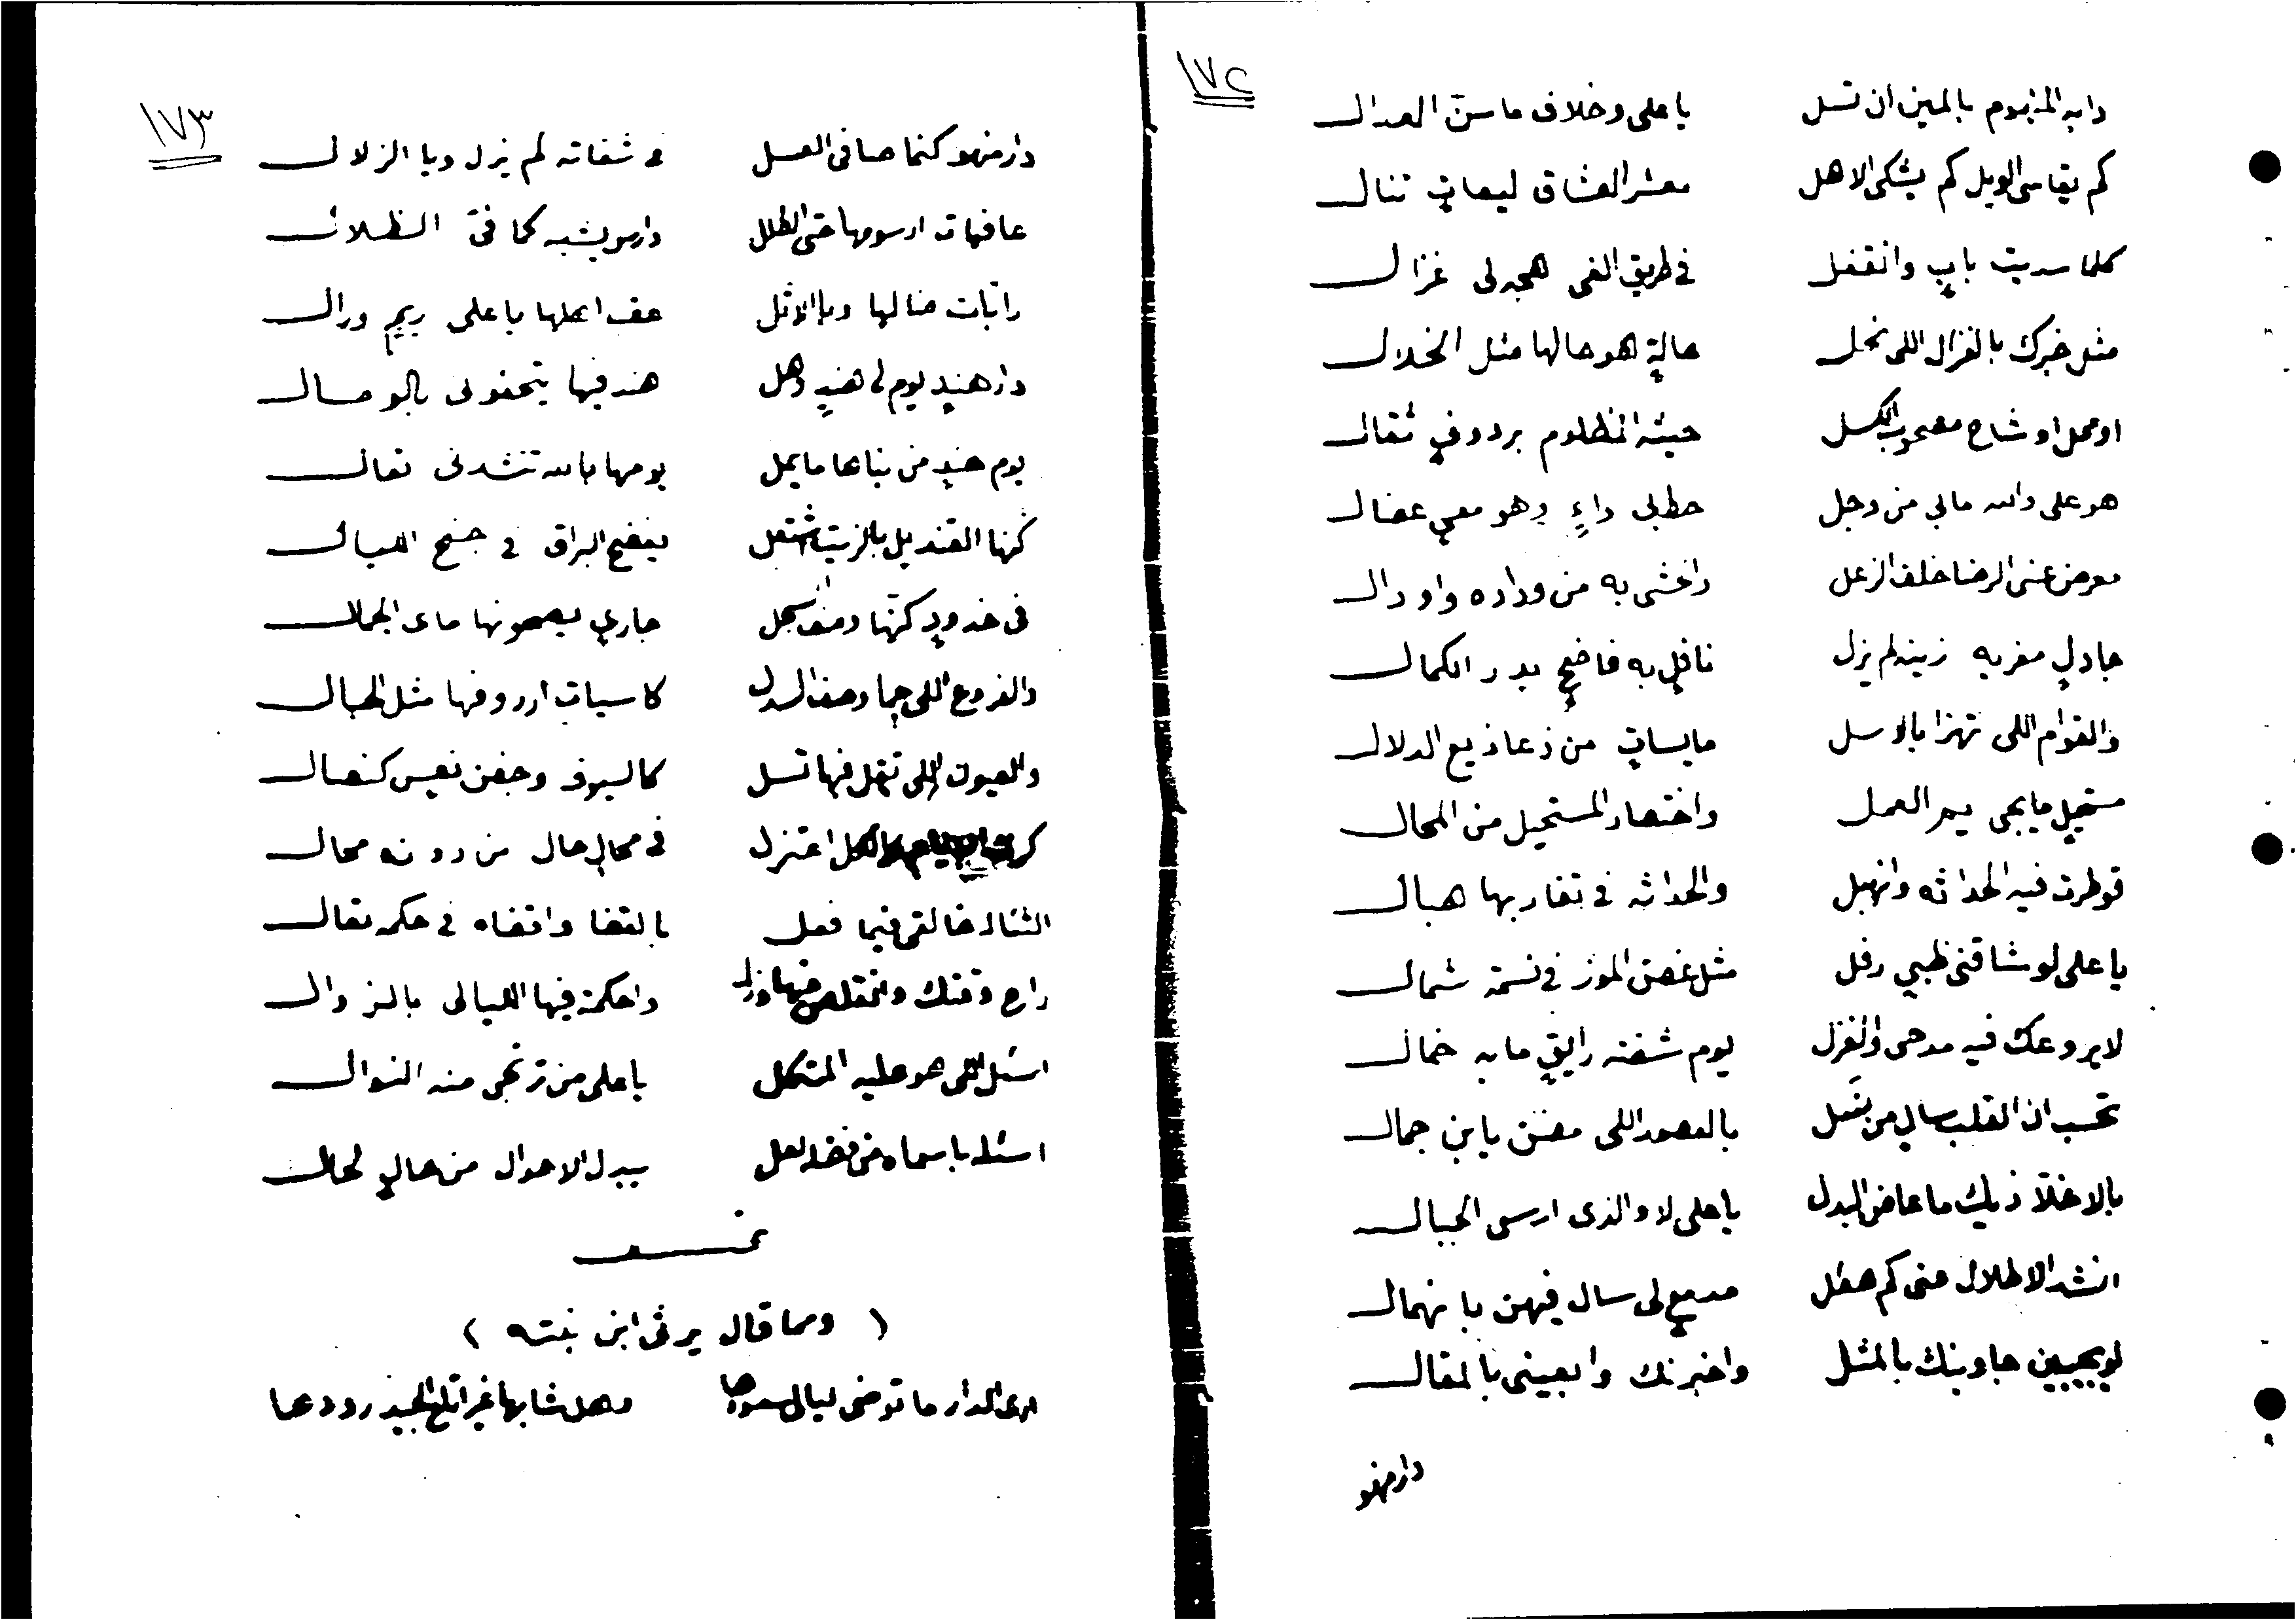 ١٧٢
دابه المذبوم بالمين ان تسل يا على وخلاف ما سن العدال
كم يقاسى الويل كم يشكى الاهل معشر العشاق ليعاتٍ تنال
كلما سديت بابٍ وانقفل في طريق الغى هجه لى غزال
مثل خبرك بالغزال اللى نحل حالةٍ هو حالها مثل الخلال
او عمل او شاح مصحوب الكسل حيثه المظلوم بردوفٍ ثقال
هو على والله مالي من وجل حطابى داءٍ وهو معي عضال
معرض عنى الرضا خلف الزعل واخشى به من وداده واودال
جادلٍ مغربه زينه لم يزل نافلٍ به فاضحٍ بدر الكمال
والقوام اللى تهزا بالاسل مايساتٍ من ذعاذيع الدلال
مستحيل ما يجى يمر العمل واختصار المستحيل من المحال
قوطرت فيه الحداثه وانهبل والحداثه في تقاربها هبال
يا على لو شاقنى ظبي رفل مثل غصن الموز في نسمة شمال
لا يروعك فيه مدحى والغزل ليوم شفته رايقٍ ما به خمال
تحسب ان القلب سالى من بغل بالعهد اللى مضن يا بن جمال
بالاخلا ذيك ما عاض البدل يا على لا والذى ارسى الجبال
انشد الاطلال عنى كم هطل مدمعٍ لى سال فيهن بانهمال
لو يجيبن جاوبنك بالمثل واخبرنك وانعينى بالمقال
دار منهو
١٧٣
دار منهو كنما صافى العسل فى شفاته لم يزل ويا الزلال
عافيات ارسومها حتى الطلل دارس يشبه كما في الظلال
راتبات منالها ويا الاثل عقب اهلها يا على ريمٍ ورال
دار هندٍ يوم لى هندٍ وهل هند فيها يتحفونى بالوصال
يوم هندٍ من نباها ما يمل يومها بالله تنشدنى تعال
كنها القنديل بالزيت اشتعل يفضح البراق في جنح الليال
فى خدودٍ كنها ومضٍ سجل جارىٍ بصحونها ماى الجمال
والفروع اللى بها وصف السدل كاسيات اردوفها مثل الحبال
والعيون اللى تقل فيها تسل كالسيوف وجفن نعيس كنصال
كل اعتزل فى محالٍ حال من دونه محال
الثنا لخالقى فيما فعل بالقضا واقضاه في حكمه تعال
راح وقتك وانتقلص منها وزل واحكمت فيها الليالى بالزوال
اسئل اللى هو عليه المتكل يا على من ترتجى منه النوال
اسئله باسماه من فضله لعل يبدل الاحوال من حالٍ لحال
تمت
( ومما قال يرثى ابن بنته )
ارى الدار ما توضى ليالى سعودها وهل شابها غير اتلع الجيد رودها